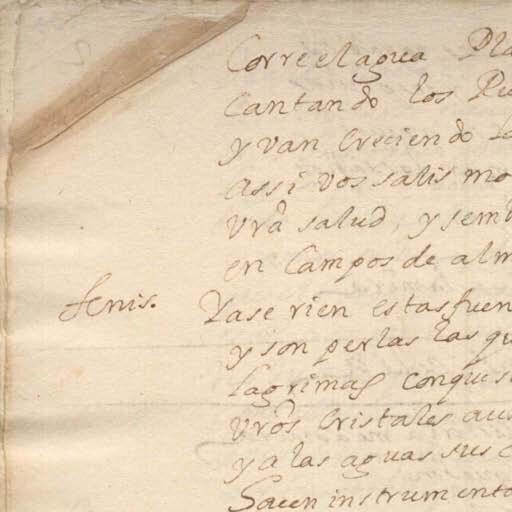 Corre el agua Pla
Cantando los Pa
y van Creciendo la
assi vos salis mo
vrã salud, y semb
en Campos de alm
fenis. Ya se rien estas fuen
y son perlas las qu
lagrimas conques
vrõs Cristales au
y a las aguas sus c
Sacen instrumento